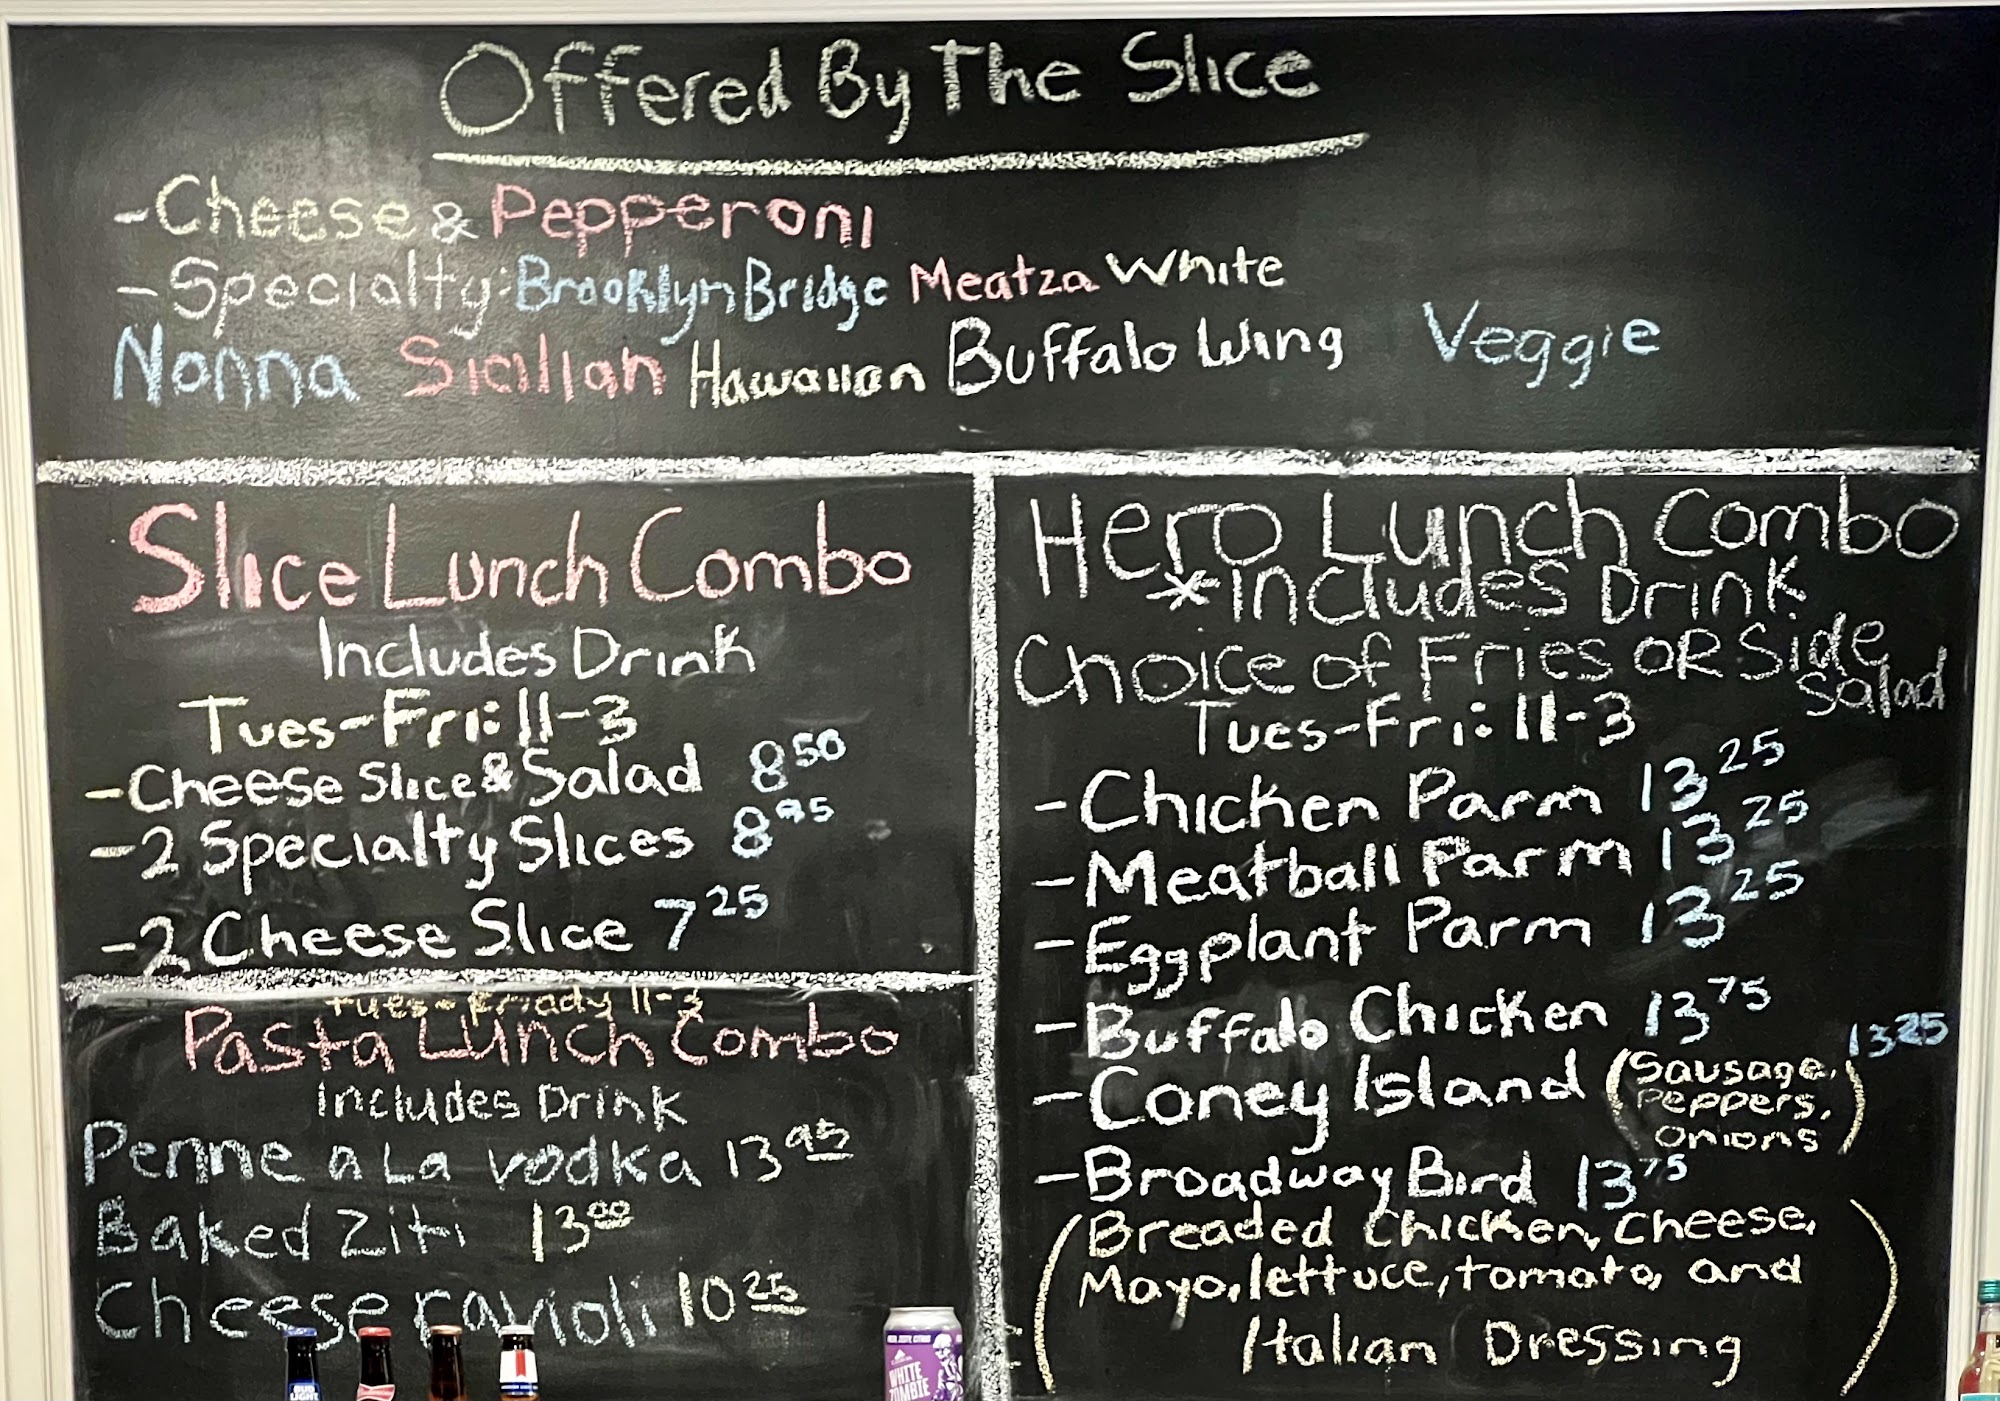 Offered By The Slice
-Cheese & Pepperoni
-Specialty: Brooklyn Bridge Meatza White
Nonna Sicilian Hawaiian Buffalo Wing Veggie
Slice Lunch Combo
Includes Drink
Tues-Fri: 11-3
-Cheese Slice & Salad 8 50
-2 Specialty Slices 8 95
-2 Cheese Slice 7 25
tues-friady 11-3
Pasta Lunch Combo
includes Drink
Penne a La vodka 13 95
Baked Ziti 13 00
Cheese ravioli 10 25
Hero Lunch Combo
*Includes Drink
Choice of Fries OR Side
Salad
Tues-Fri: 11-3
-Chicken Parm 13 25
-Meatball Parm 13 25
-Eggplant Parm 13 25
-Buffalo Chicken 13 75
-Coney Island (Sausage, Peppers, onions) 13 25
-Broadway Bird 13 75
(Breaded Chicken, Cheese,
Mayo, lettuce, tomato, and
Italian Dressing)
BUD
LIGHT
WHITE
ZOMBIE